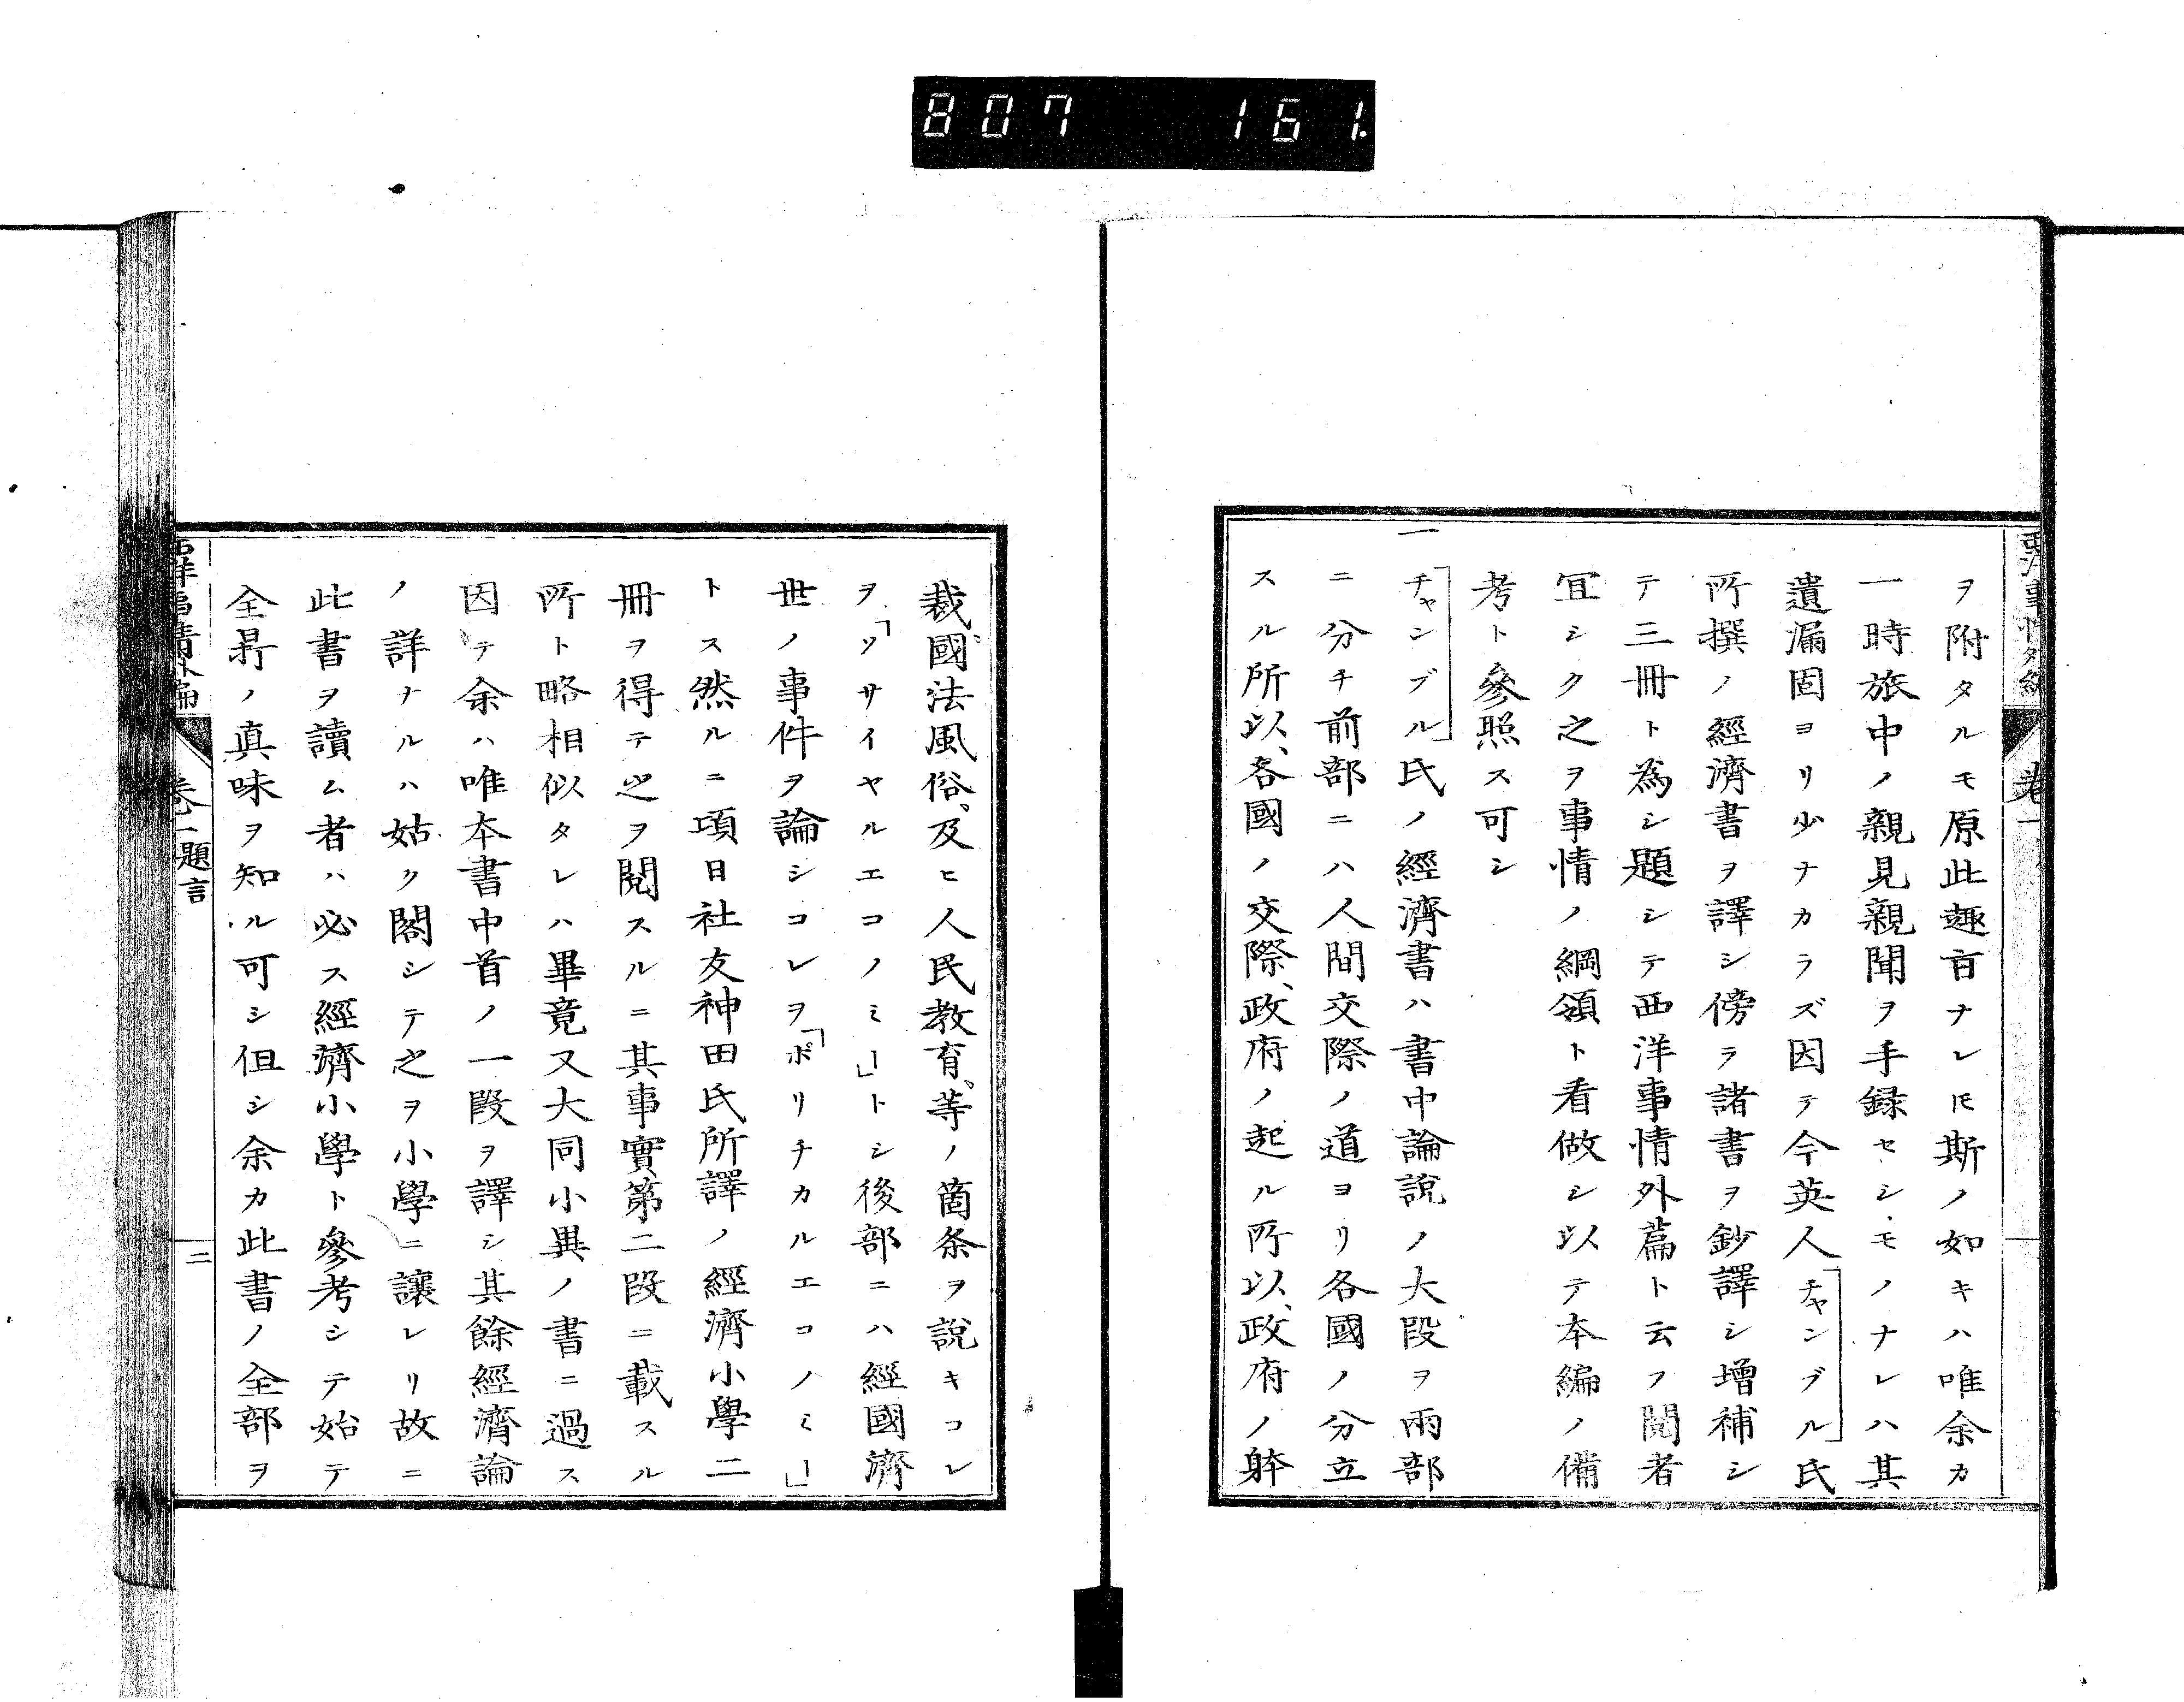 807 161.
西洋事情外編 卷一
ヲ附タルモ原此趣旨ナレ𪜈斯ノ如キハ唯余カ
一時旅中ノ親見親聞ヲ手録セシモノナレハ其
遺漏固ヨリ少ナカラズ因テ今英人「チャンブル」氏
所撰ノ經濟書ヲ譯シ傍ラ諸書ヲ鈔譯シ増補シ
テ三冊ト為シ題シテ西洋事情外篇ト云フ閲者
冝シク之ヲ事情ノ綱領ト看做シ以テ本編ノ備
考ト參照ス可シ
一「チャンブル」氏ノ經濟書ハ書中論說ノ大段ヲ兩部
ニ分チ前部ニハ人間交際ノ道ヨリ各國ノ分立
スル所以、各國ノ交際、政府ノ起ル所以、政府ノ躰
裁、國法風俗、及ヒ人民教育、等ノ箇条ヲ說キコレ
ヲ「ソサイヤルエコノミー」トシ後部ニハ經國濟
世ノ事件ヲ論シコレヲ「ポリチカルエコノミー」
トス然ルニ項日社友神田氏所譯ノ經濟小學二
冊ヲ得テ之ヲ閲スルニ其事實第二段ニ載スル
所ト略相似タレハ畢竟又大同小異ノ書ニ過ス
因テ余ハ唯本書中首ノ一段ヲ譯シ其餘經濟論
ノ詳ナルハ姑ク閣シテ之ヲ小學ニ讓レリ故ニ
此書ヲ讀ム者ハ必ス經濟小學ト參考シテ始テ
全㫒ノ真味ヲ知ル可シ但シ余カ此書ノ全部ヲ
西洋事情外編 卷一題言 二